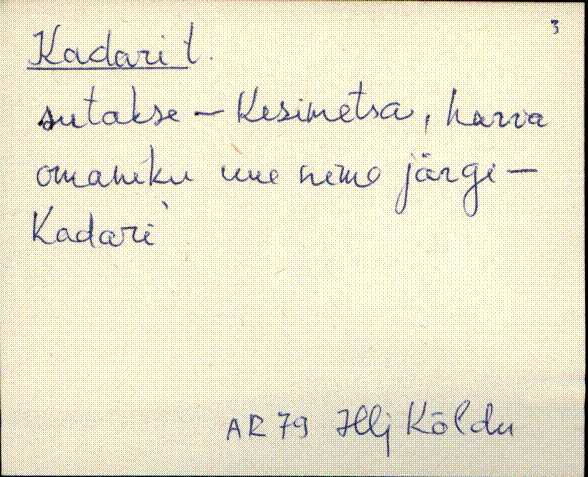 3
Kadari t.
sutakse – Kesimetsa, harva
omaniku nime järgi –
Kadari
AR 79 Hlj Kõldu